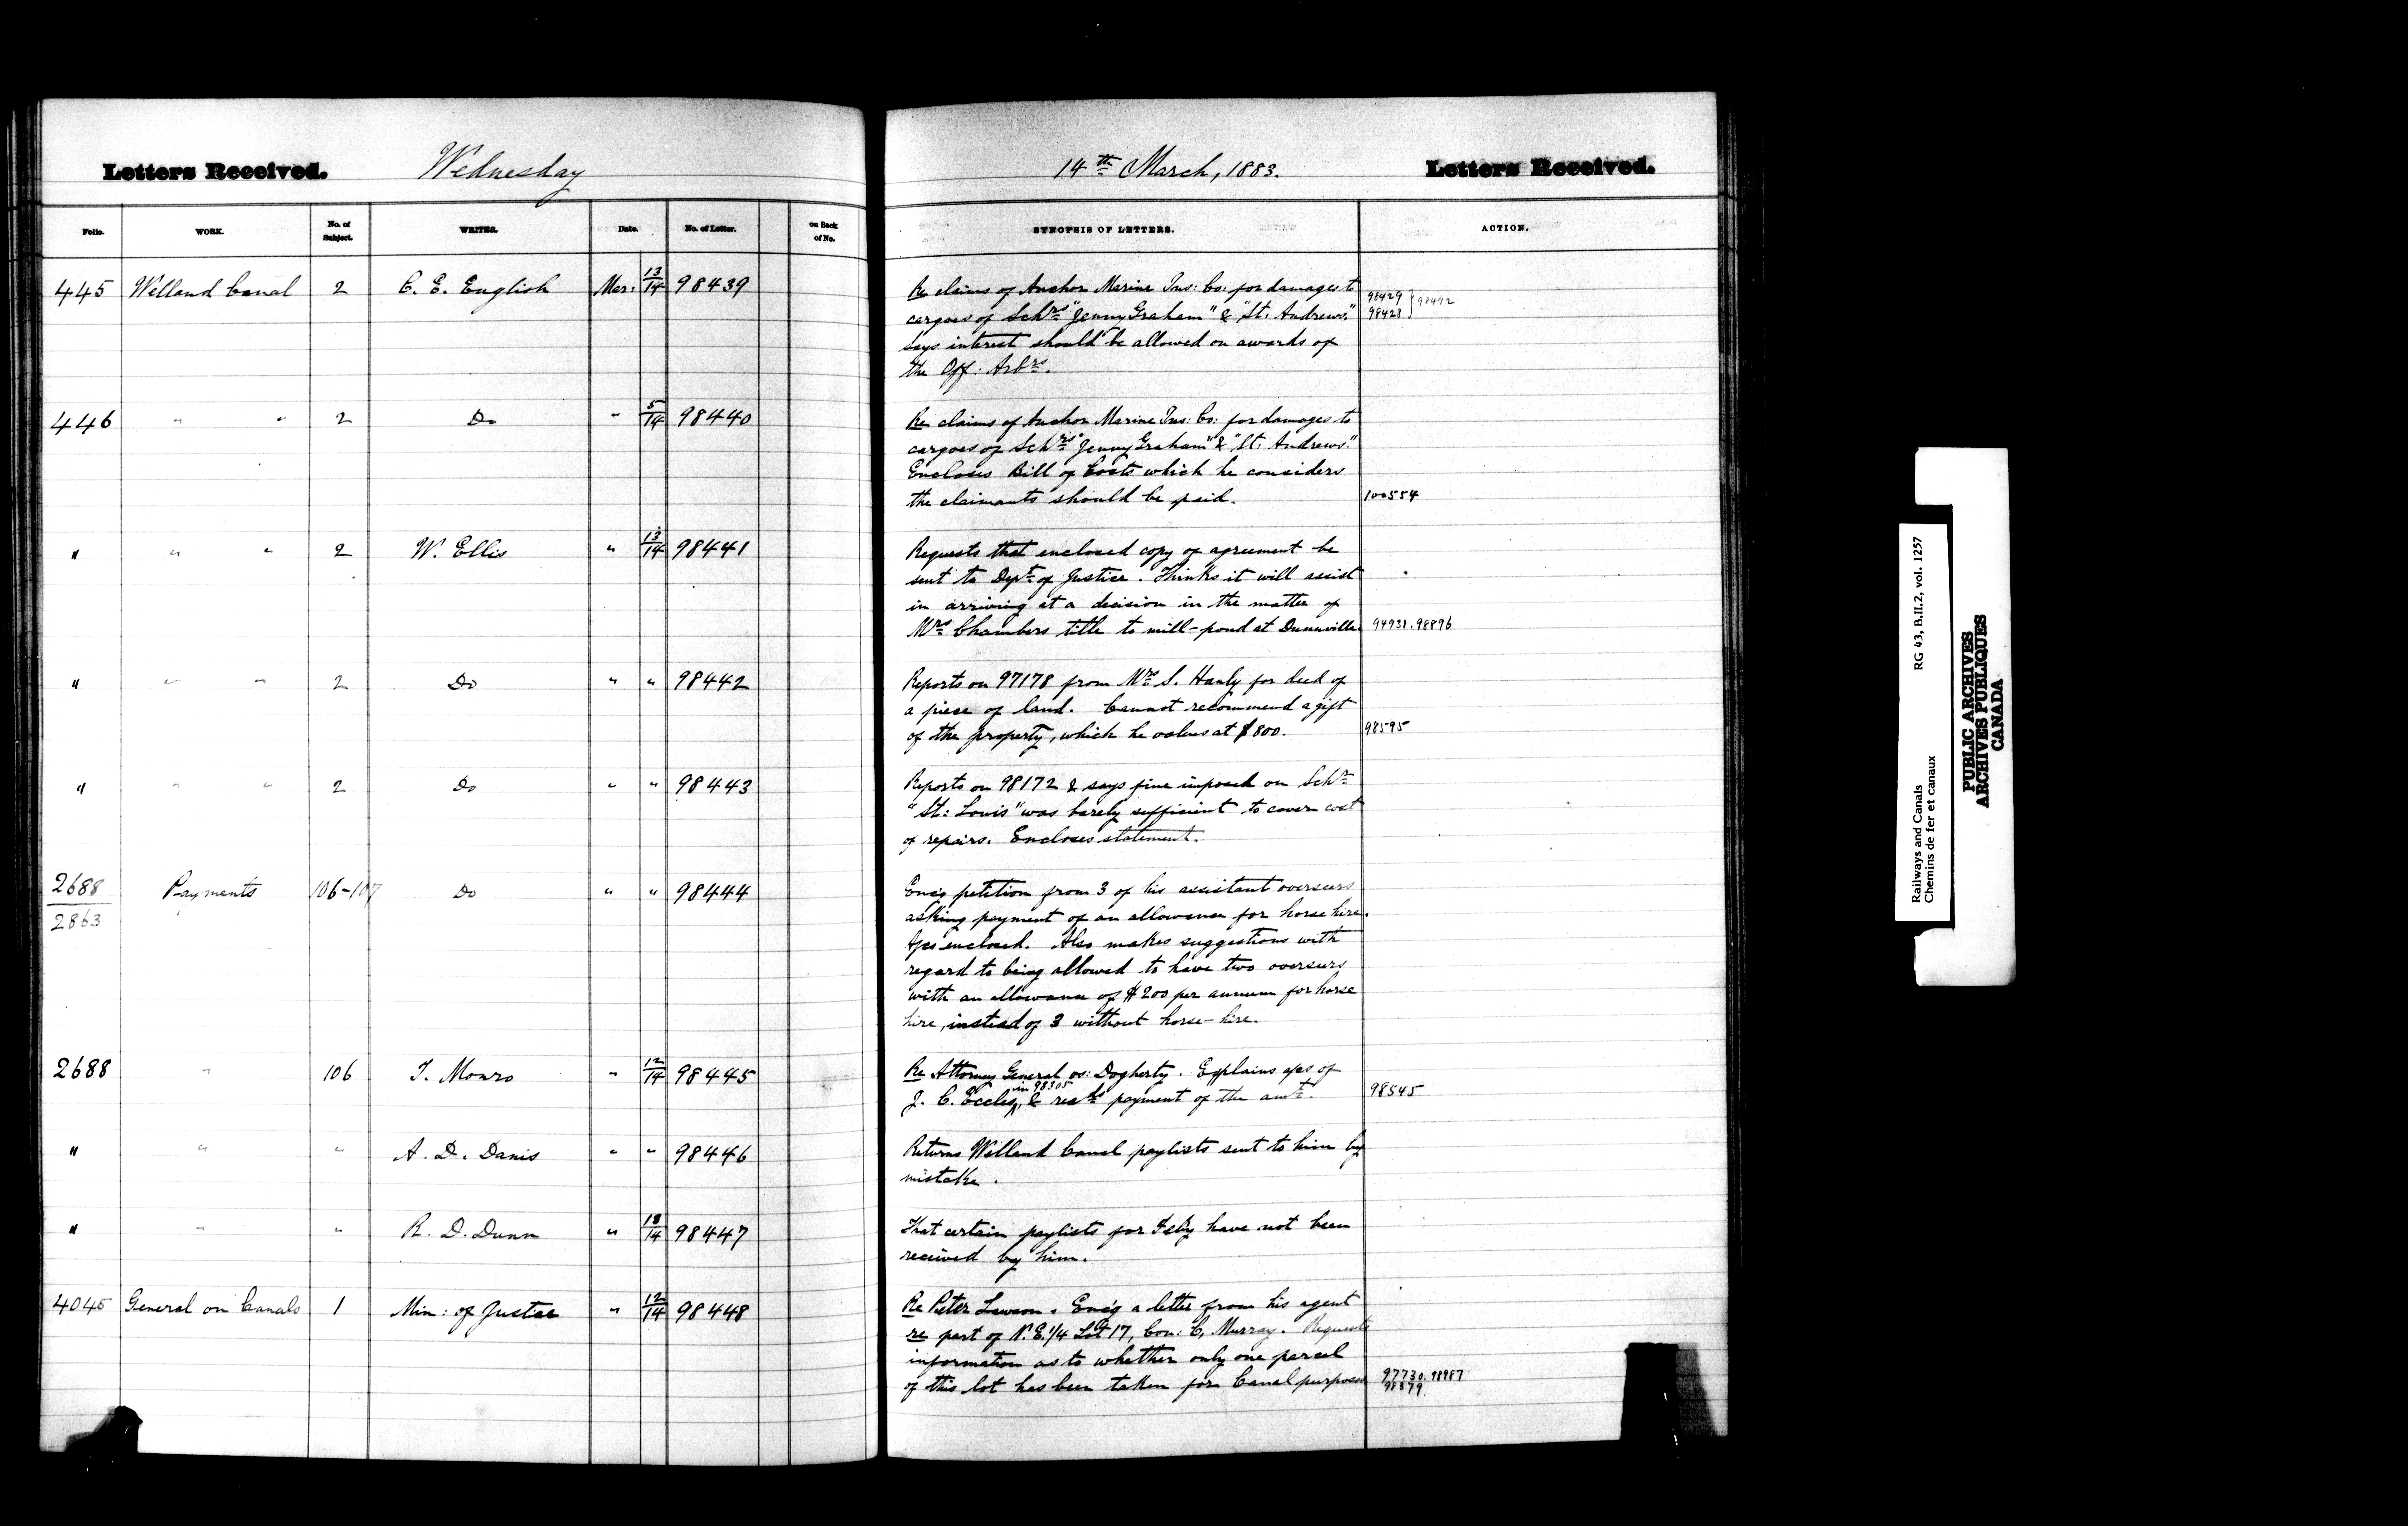 Letters Received.
Wednesday
14th March, 1883.
Letters Received.
Folio.
WORK.
No. of Subject.
WRITER.
Date.
No. of Letter.
on Back of No.
SYNOPSIS OF LETTERS.
ACTION.
445 Welland Canal 2 C. E. English Mar: 13/14 98439
Re claims of Anchor Marine Ins: Co: for damages to
cargoes of Schrs "Jenny Graham" & "St. Andrews."
says interest should be allowed on awards of
the Off: Arbrs.
98429
98428 } 98492
446 " " 2 Do " 5/14 98440
Re claims of Anchor Marine Ins: Co: for damages to
cargoes of Schrs "Jenny Graham" & "St. Andrews."
Encloses Bill of Costs which he considers
the claimants should be paid. 100554
" " " 2 W. Ellis " 13/14 98441
Requests that enclosed copy of agreement be
sent to Dept of Justice. Thinks it will assist
in arriving at a decision in the matter of
Mrs Chambers title to mill-pond at Dunnville. 94931. 98896
" " " 2 Do " " 98442
Reports on 97178 from Mrs S. Hanly for deed of
a piece of land. Cannot recommend a gift
of the property, which he values at $800. 98595
" " " 2 Do " " 98443
Reports on 98172 & says fine imposed on Schr
"St: Louis" was barely sufficient to cover cost
of repairs. Encloses statement.
2688/2863 Payments 106-107 Do " " 98444
Encg petition from 3 of his assistant overseers
asking payment of an allowance for horse hire.
A/cs enclosed. Also makes suggestions with
regard to being allowed to have two overseers
with an allowance of $200 per annum for horse
hire, instead of 3 without horse-hire.
2688 " 106 T. Monro " 12/14 98445
Re Attorney General vs: Dogherty. Explains a/cs of
J. C. Eccles, in 98305 & recds payment of the amt. 98545
" " " A. D. Danis " " 98446
Returns Welland Canal paylists sent to him by
mistake.
" " " R. D. Dunn " 13/14 98447
That certain paylists for Feby have not been
received by him.
4045 General on Canals 1 Min: of Justice " 12/14 98448
Re Peter Lawson. Encg a letter from his agent
re part of N.E. 1/4 Lot 17, Con: C, Murray. Requests
information as to whether only one parcel
of this lot has been taken for Canal purposes 97730. 98987
98379.
Railways and Canals RG 43, B.II.2, vol. 1257
Chemins de fer et canaux
PUBLIC ARCHIVES
ARCHIVES PUBLIQUES
CANADA